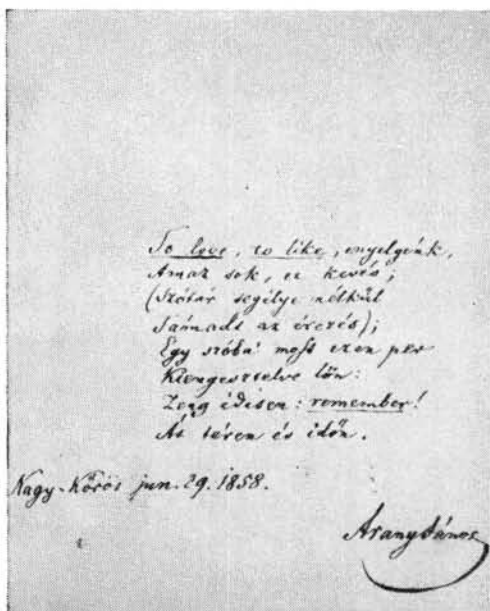 To love, to like, enyelgénk,
Amaz sok, ez kevés;
(Szótár segélye nélkül
Támadt az érezés);
Egy szóba' most ezen per
Kiengesztelve lőn:
Zeng édesen: remember!
Át téren és időn.
Nagy-Kőrös jun. 29. 1858.
Arany János